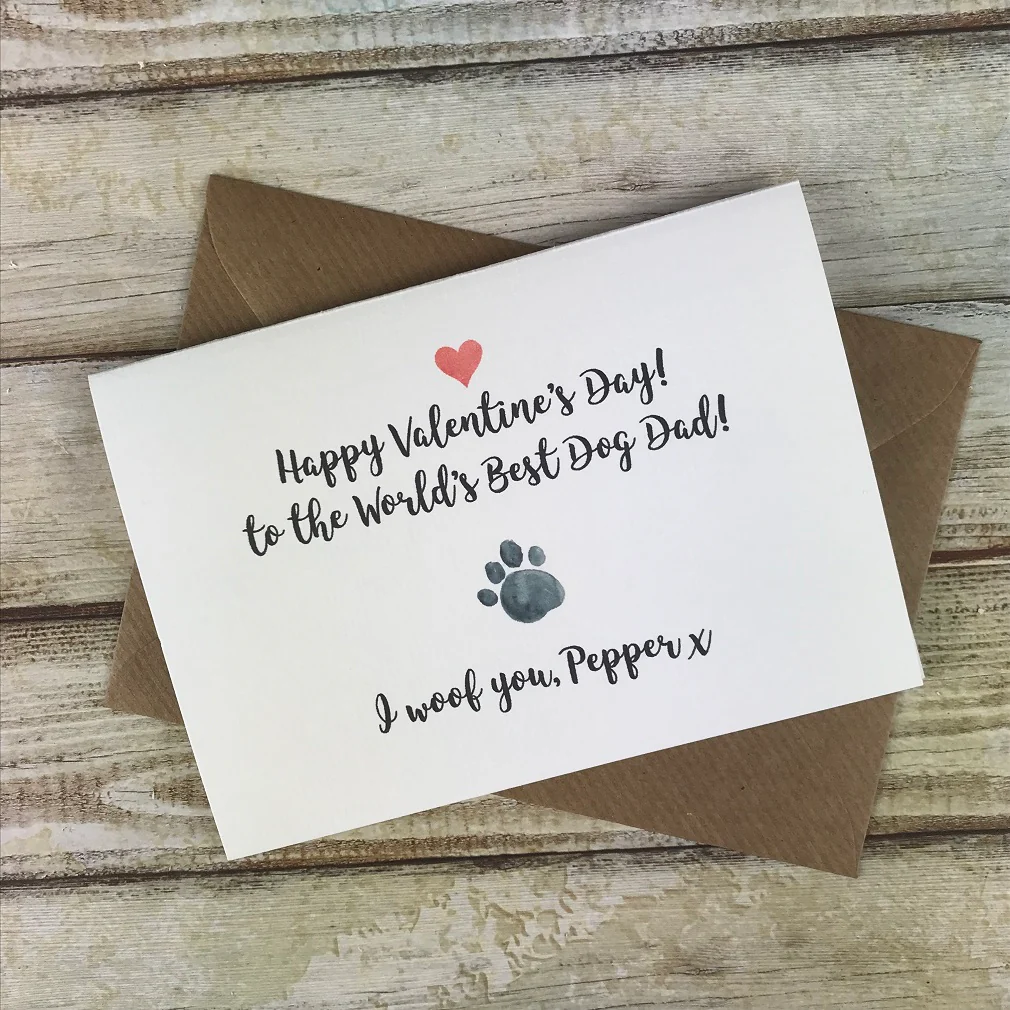 Happy Valentine's Day!
to the World's Best Dog Dad!
I woof you, Pepper x